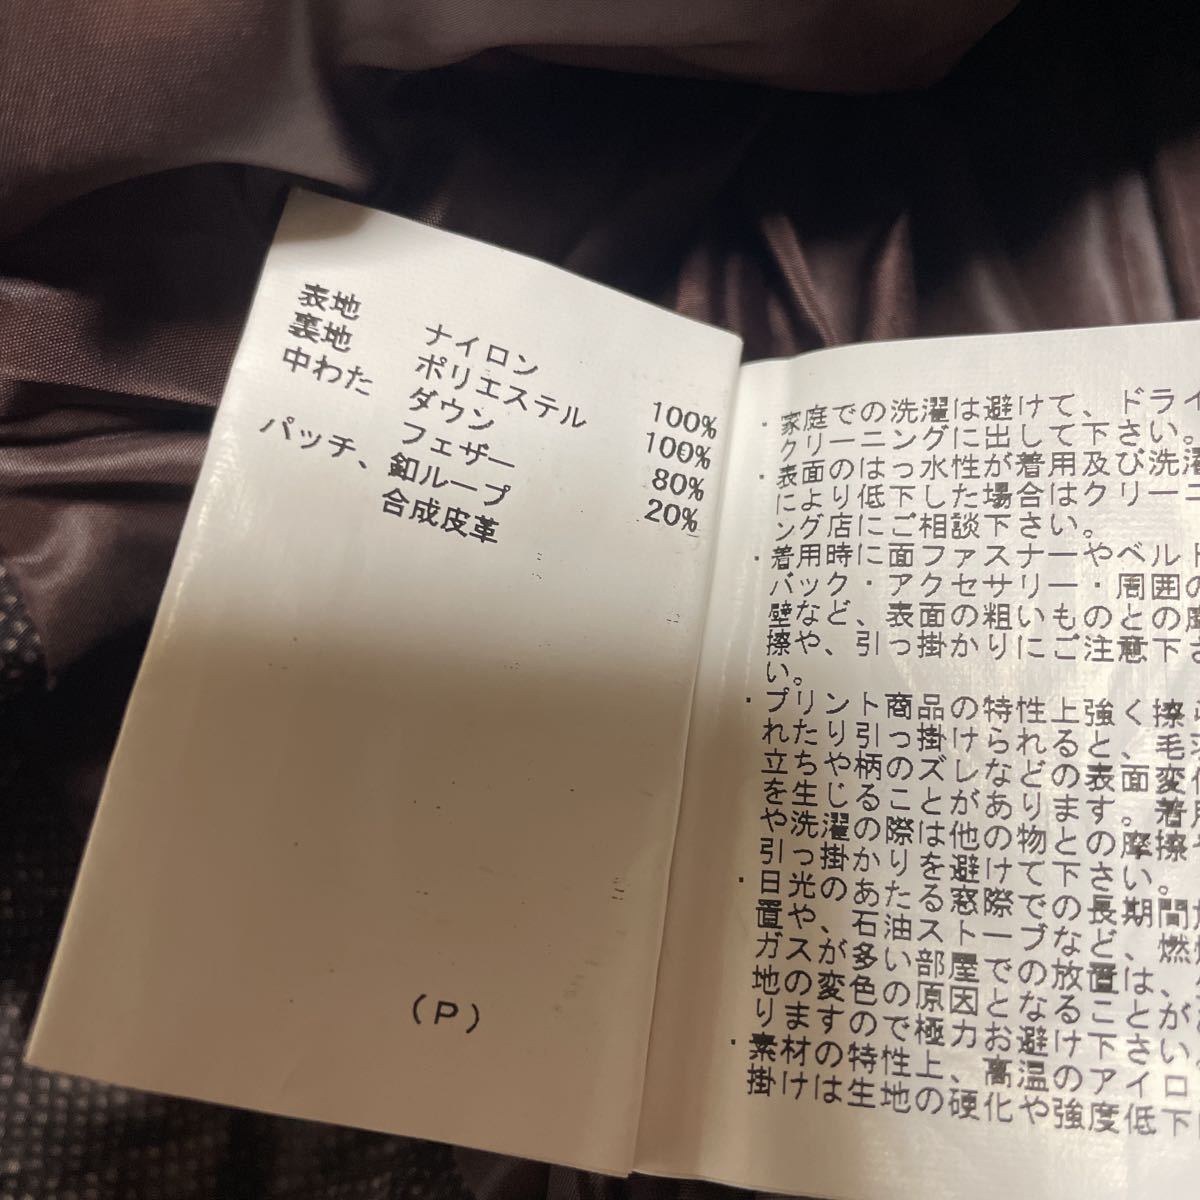 表地 ナイロン 100%
裏地 ポリエステル 100%
中わた ダウン 80%
フェザー 20%
パッチ、釦ループ
合成皮革
(P)
・家庭での洗濯は避けて、ドライ
クリーニングに出して下さい。
・表面のはっ水性が着用及び洗濯
により低下した場合はクリーニ
ング店にご相談下さい。
・着用時に面ファスナーやベルト
バック・アクセサリー・周囲の
壁など、表面の粗いものとの摩
擦や、引っ掛かりにご注意下さ
い。
・プリント商品の特性上強く擦ら
れたり引っ掛けられると、毛羽
立ちや柄のズレなどの表面変化
を生じることがあります。着用
や洗濯の際は他の物との摩擦や
引っ掛かりを避けて下さい。
・日光のあたる窓際での長期間放
置や、石油ストーブなど、燃焼
ガスが多い部屋での放置は、
地の変色の原因となることが
りますので極力お避け下さい。
・素材の特性上、高温のアイロ
掛けは生地の硬化や強度低下